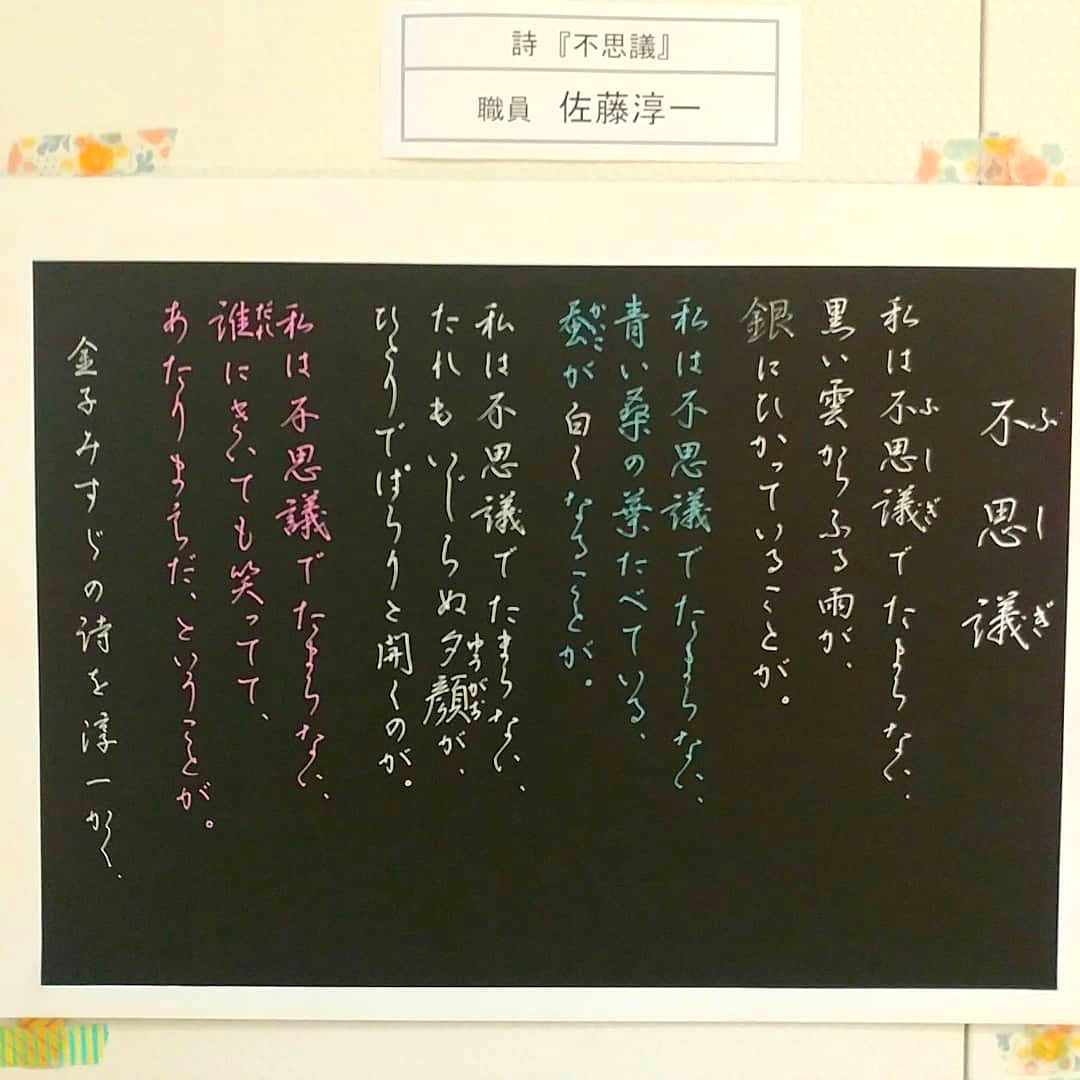 詩『不思議』
職員 佐藤淳一
不思議
ふしぎ
私は不思議でたまらない、
ふしぎ
黒い雲からふる雨が、
銀にひかっていることが。
私は不思議でたまらない、
青い桑の葉たべている、
蚕が白くなることが。
かいこ
私は不思議でたまらない、
たれもいじらぬ夕顔が、
ゆうがお
ひとりでぱらりと開くのが。
私は不思議でたまらない、
誰にきいても笑ってて、
だれ
あたりまえだ、ということが。
金子みすゞの詩を淳一かく、